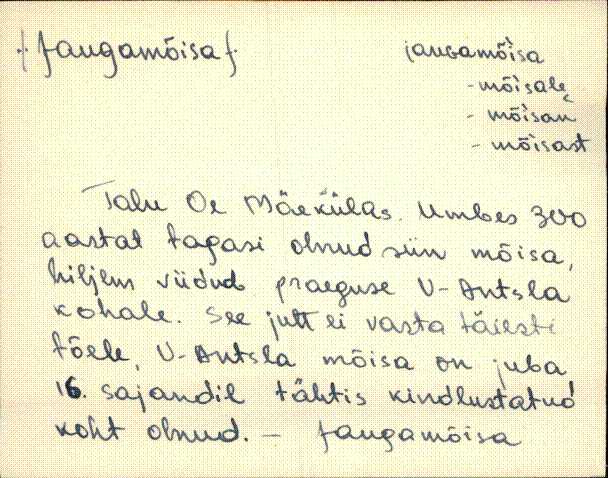 /. Jaugamõisa /.
jaugamõisa
- mõisale
- mõisan
- mõisast
Talu Oe Mäekülas. Umbes 300
aastat tagasi olnud siin mõisa,
hiljem viidud praeguse V-Antsla
kohale. See jutt ei vasta täiesti
tõele, V-Antsla mõisa on juba
16. sajandil tähtis kindlustatud
koht olnud. - Jaugamõisa